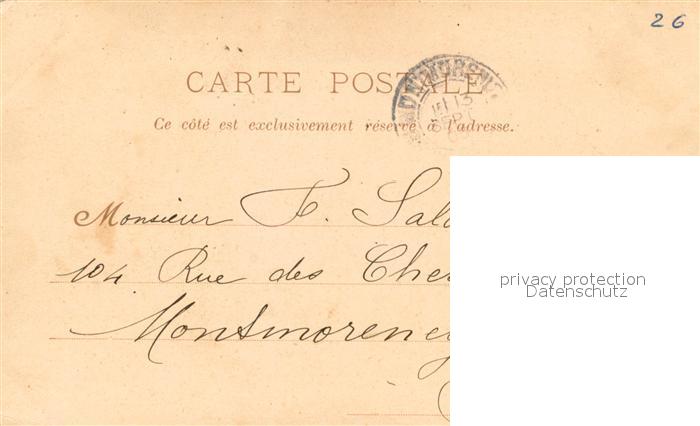 26
CARTE POSTALE
Ce côté est exclusivement réservé à l'adresse.
13
SEPT
Monsieur F. Sala
104 Rue des Cher
Montmorency
privacy protection
Datenschutz